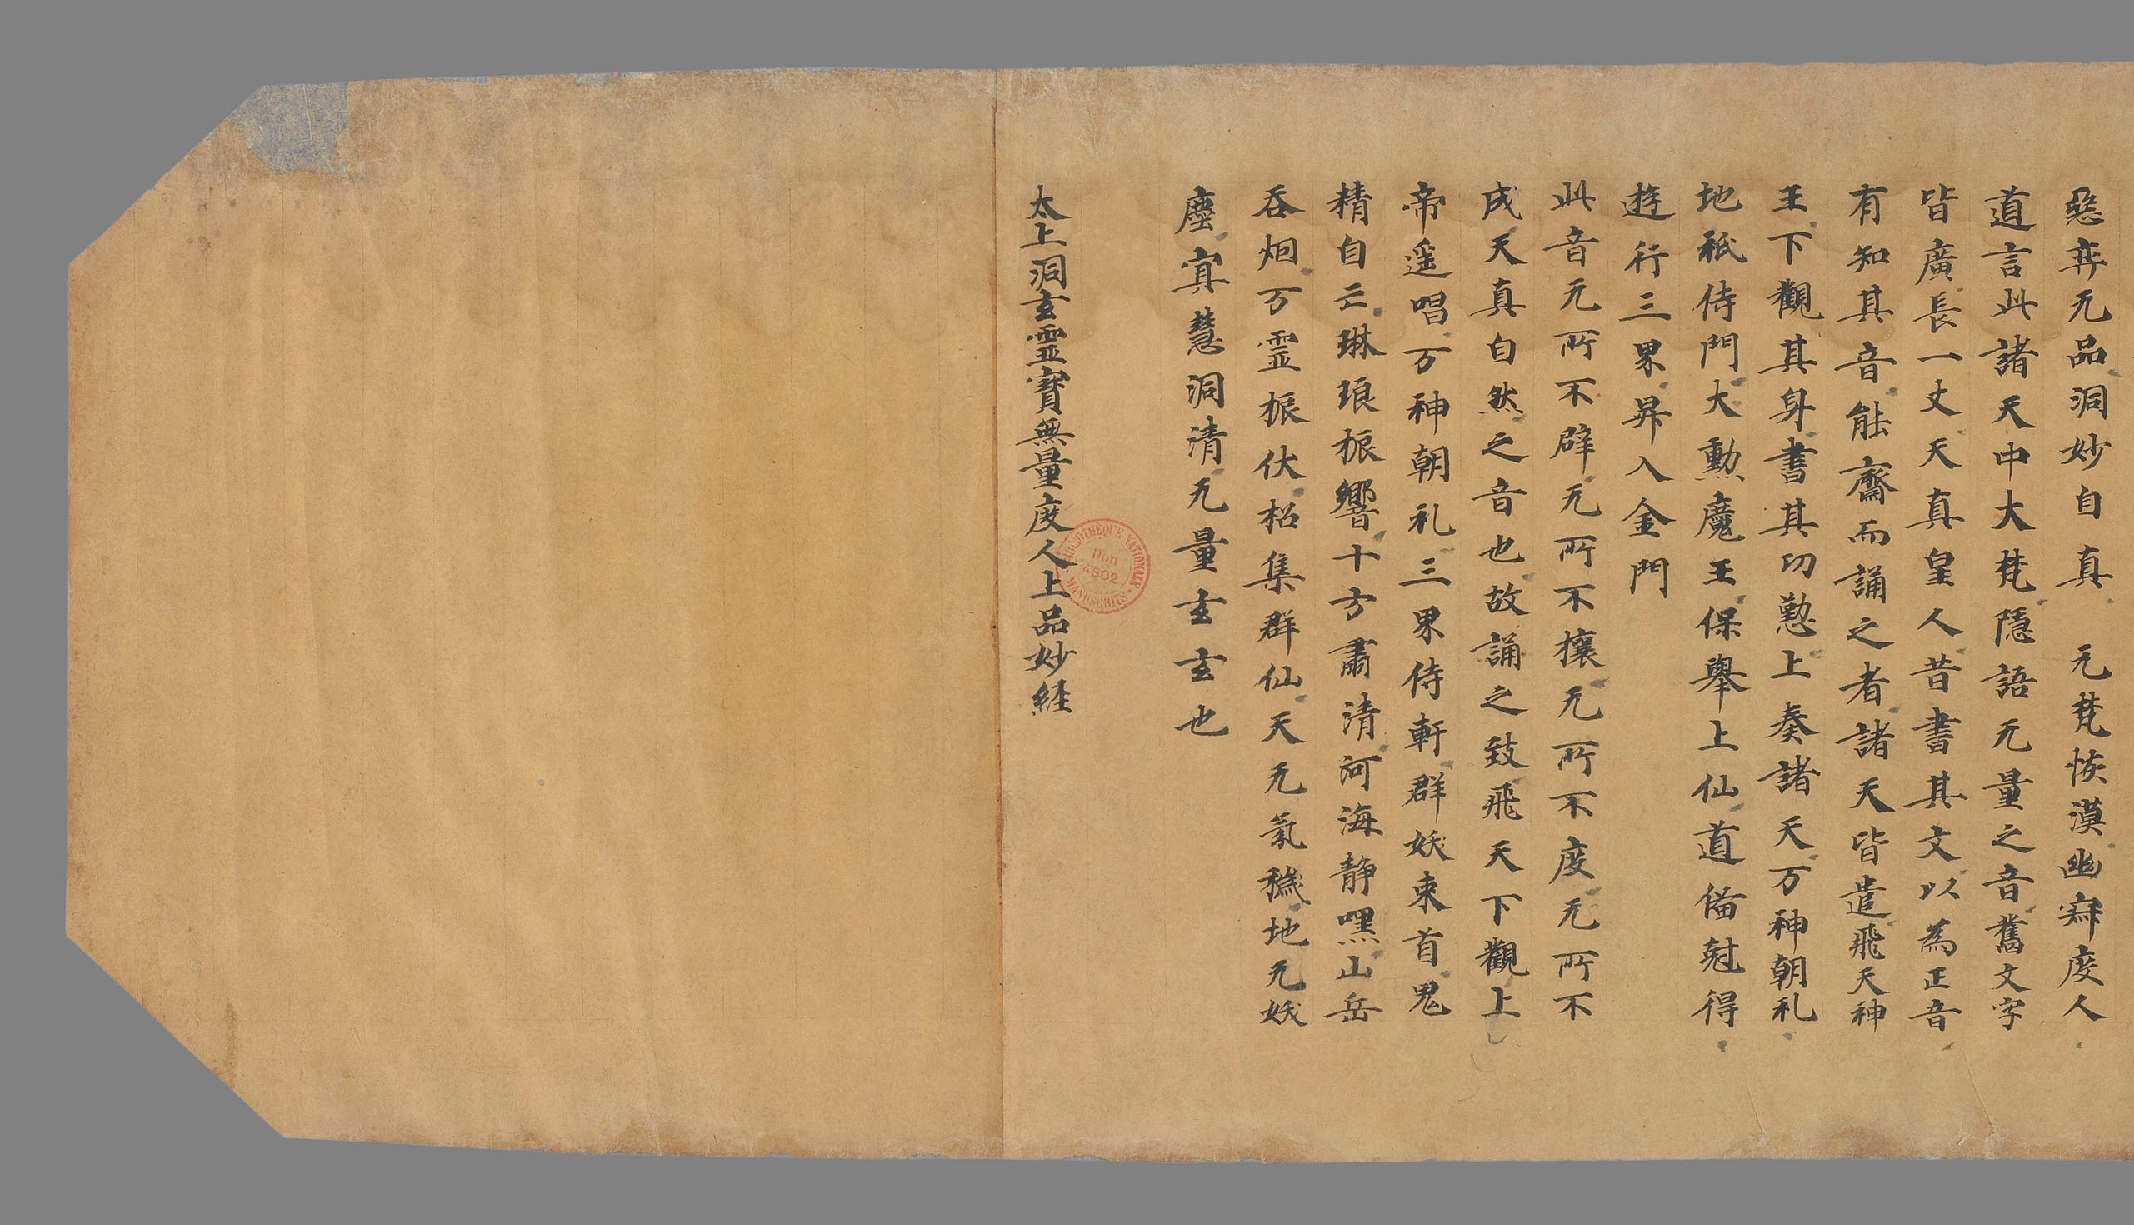 慈弈无品洞妙自真 元梵恢漠幽寂度人
道言此諸天中大梵隱語无量之音舊文字
皆廣長一丈天真皇人昔書其文以為正音
有知其音能齋而誦之者諸天皆遣飛天神
王下觀其身書其功懃上奏諸天万神朝礼
地祇侍門大勳魔王保舉上仙道備尅得
遊行三界昇入金門
此音无所不辟无所不攘无所不度无所不
成天真自然之音也故誦之致飛天下觀上
帝遥唱万神朝礼三界侍軒群妖束首鬼
精自亡琳琅振響十方肅清河海静嘿山岳
吞烟万靈振伏招集群仙天无氣穢地无妖
塵冥慧洞清无量玄玄也
太上洞玄靈寶無量度人上品妙経
BIBLIOTHEQUE NATIONALE MANUSCRITS
Don 4502